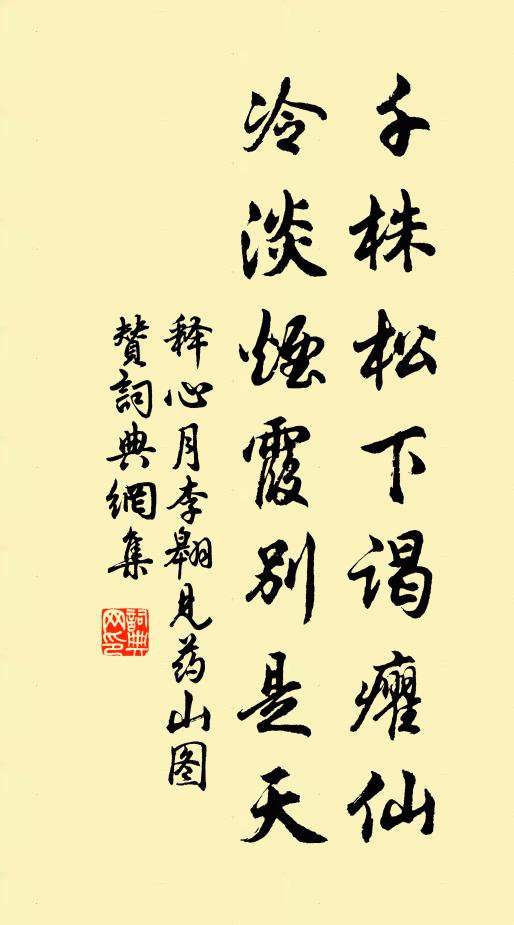 千株松下谒癯仙
冷淡煙霞别是天
释心月李翱见药山图
赞詞典網集
詞典
网印